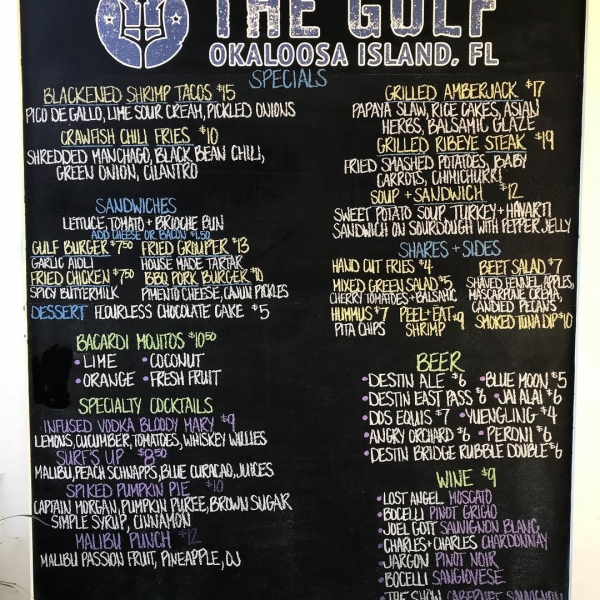 THE GULF
OKALOOSA ISLAND, FL
SPECIALS
BLACKENED SHRIMP TACOS $15
PICO DE GALLO, LIME SOUR CREAM, PICKLED ONIONS
CRAWFISH CHILI FRIES $10
SHREDDED MANCHAGO, BLACK BEAN CHILI,
GREEN ONION, CILANTRO
GRILLED AMBERJACK $17
PAPAYA SLAW, RICE CAKES, ASIAN
HERBS, BALSAMIC GLAZE
GRILLED RIBEYE STEAK $19
FRIED SMASHED POTATOES, BABY
CARROTS, CHIMICHURRI
SOUP + SANDWICH $12
SWEET POTATO SOUP TURKEY + HAVARTI
SANDWICH ON SOURDOUGH WITH PEPPER JELLY
SANDWICHES
LETTUCE, TOMATO + BRIOCHE BUN
ADD CHEESE OR BACON $1.50
GULF BURGER $7.50 FRIED GROUPER $13
GARLIC AIOLI HOUSE MADE TARTAR
FRIED CHICKEN $7.50 BBQ PORK BURGER $10
SPICY BUTTERMILK PIMENTO CHEESE, CAJUN PICKLES
DESSERT FLOURLESS CHOCOLATE CAKE $5
SHARES + SIDES
HAND CUT FRIES $4
MIXED GREEN SALAD $5
CHERRY TOMATOES + BALSAMIC
HUMMUS $7 PEEL + EAT $9
PITA CHIPS SHRIMP
BEET SALAD $7
SHAVED FENNEL, APPLES,
MASCARPONE CREMA,
CANDIED PECANS
SMOKED TUNA DIP $10
BACARDI MOJITOS $10.50
• LIME • COCONUT
• ORANGE • FRESH FRUIT
SPECIALTY COCKTAILS
INFUSED VODKA BLOODY MARY $9
LEMONS, CUCUMBER, TOMATOES, WHISKEY WILLIES
SURF'S UP $8.50
MALIBU, PEACH SCHNAPPS, BLUE CURACAO, JUICES
SPIKED PUMPKIN PIE $10
CAPTAIN MORGAN, PUMPKIN PUREE, BROWN SUGAR
SIMPLE SYRUP, CINNAMON
MALIBU PUNCH $12
MALIBU PASSION FRUIT, PINEAPPLE, OJ
BEER
• DESTIN ALE $6 • BLUE MOON $5
• DESTIN EAST PASS $6 • JAI ALAI $6
• DOS EQUIS $7 • YUENGLING $4
• ANGRY ORCHARD $6 • PERONI $6
• DESTIN BRIDGE RUBBLE DOUBLE $6
WINE $9
• LOST ANGEL MOSCATO
• BOCELLI PINOT GRIGIO
• JOEL GOTT SAUVIGNON BLANC
• CHARLES + CHARLES CHARDONNAY
• JARGON PINOT NOIR
• BOCELLI SANGIOVESE
• THE SHOW CABERNET SAUVIGNON